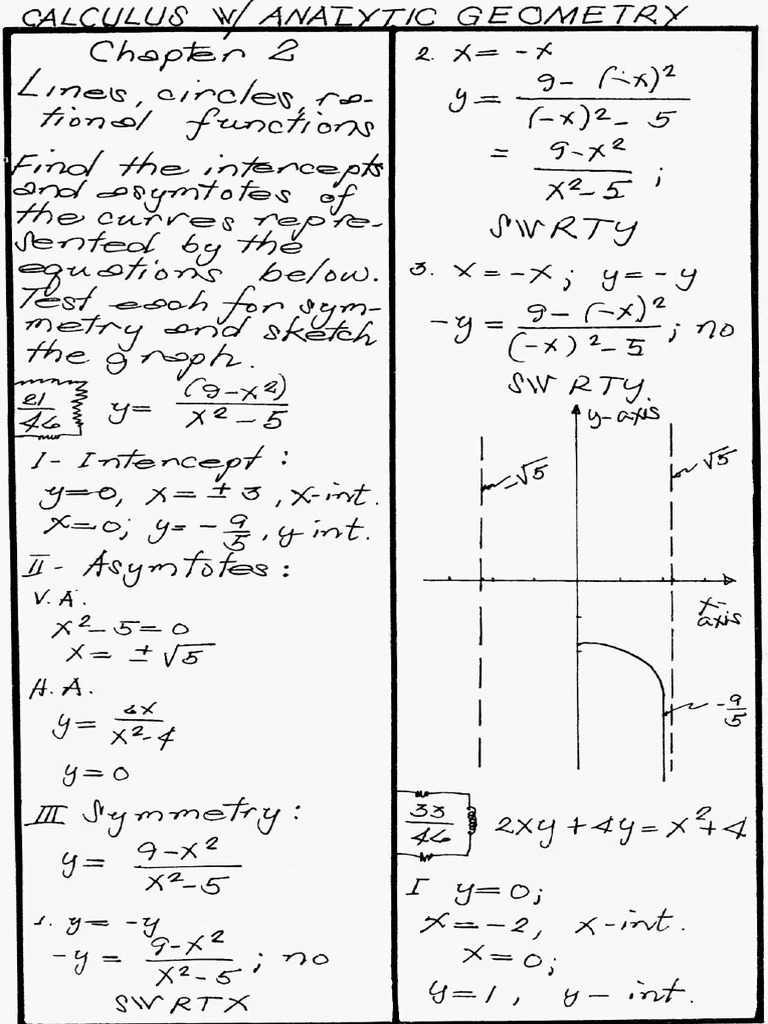 CALCULUS W/ ANALYTIC GEOMETRY
Chapter 2
Lines, circles, ra-
tional functions
Find the intercepts
and asymtotes of
the curves repre-
sented by the
equations below.
Test each for sym-
metry and sketch
the graph.
21/46 y = (9-x²)/(x²-5)
I - Intercept:
y=0, x=±3, x-int.
x=0; y=-9/5, y int.
II - Asymtotes:
V.A.
x²-5=0
x=±√5
H.A.
y=6x/(x²-4)
y=0
III Symmetry:
y=(9-x²)/(x²-5)
1. y=-y
-y=(9-x²)/(x²-5); no
SWRTX
2. x=-x
y=(9-(-x)²)/((-x)²-5)
=(9-x²)/(x²-5);
SWRTY
3. x=-x; y=-y
-y=(9-(-x)²)/((-x)²-5); no
SWRTY.
y-axis
-√5
√5
x-
axis
-9/5
33/46 2xy+4y=x²+4
I y=0;
x=-2, x-int.
x=0;
y=1, y-int.